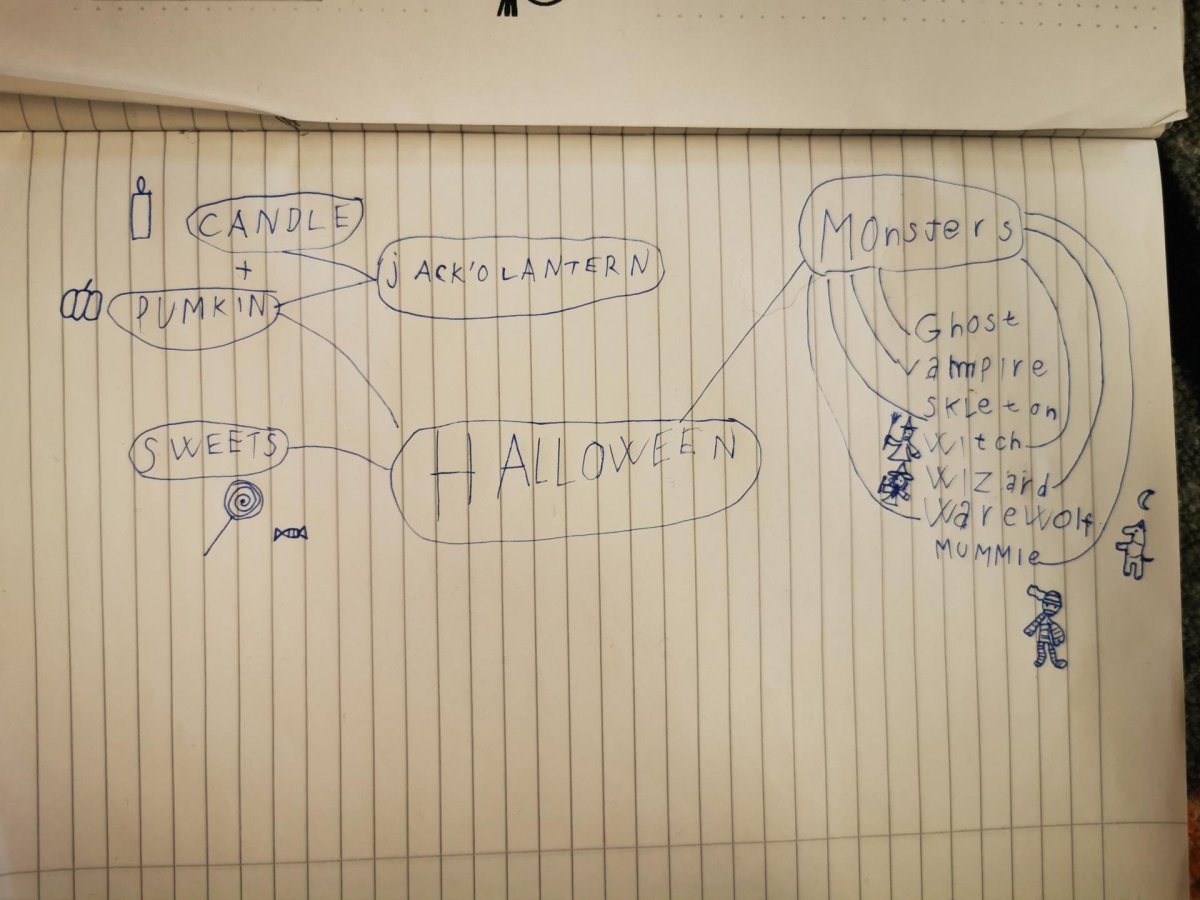 CANDLE
+
PUMKIN
jACK'O LANTERN
SWEETS
HALLOWEEN
MOnsters
Ghost
vampire
SKleton
Witch
Wizard
Warewolf
MUMMIe